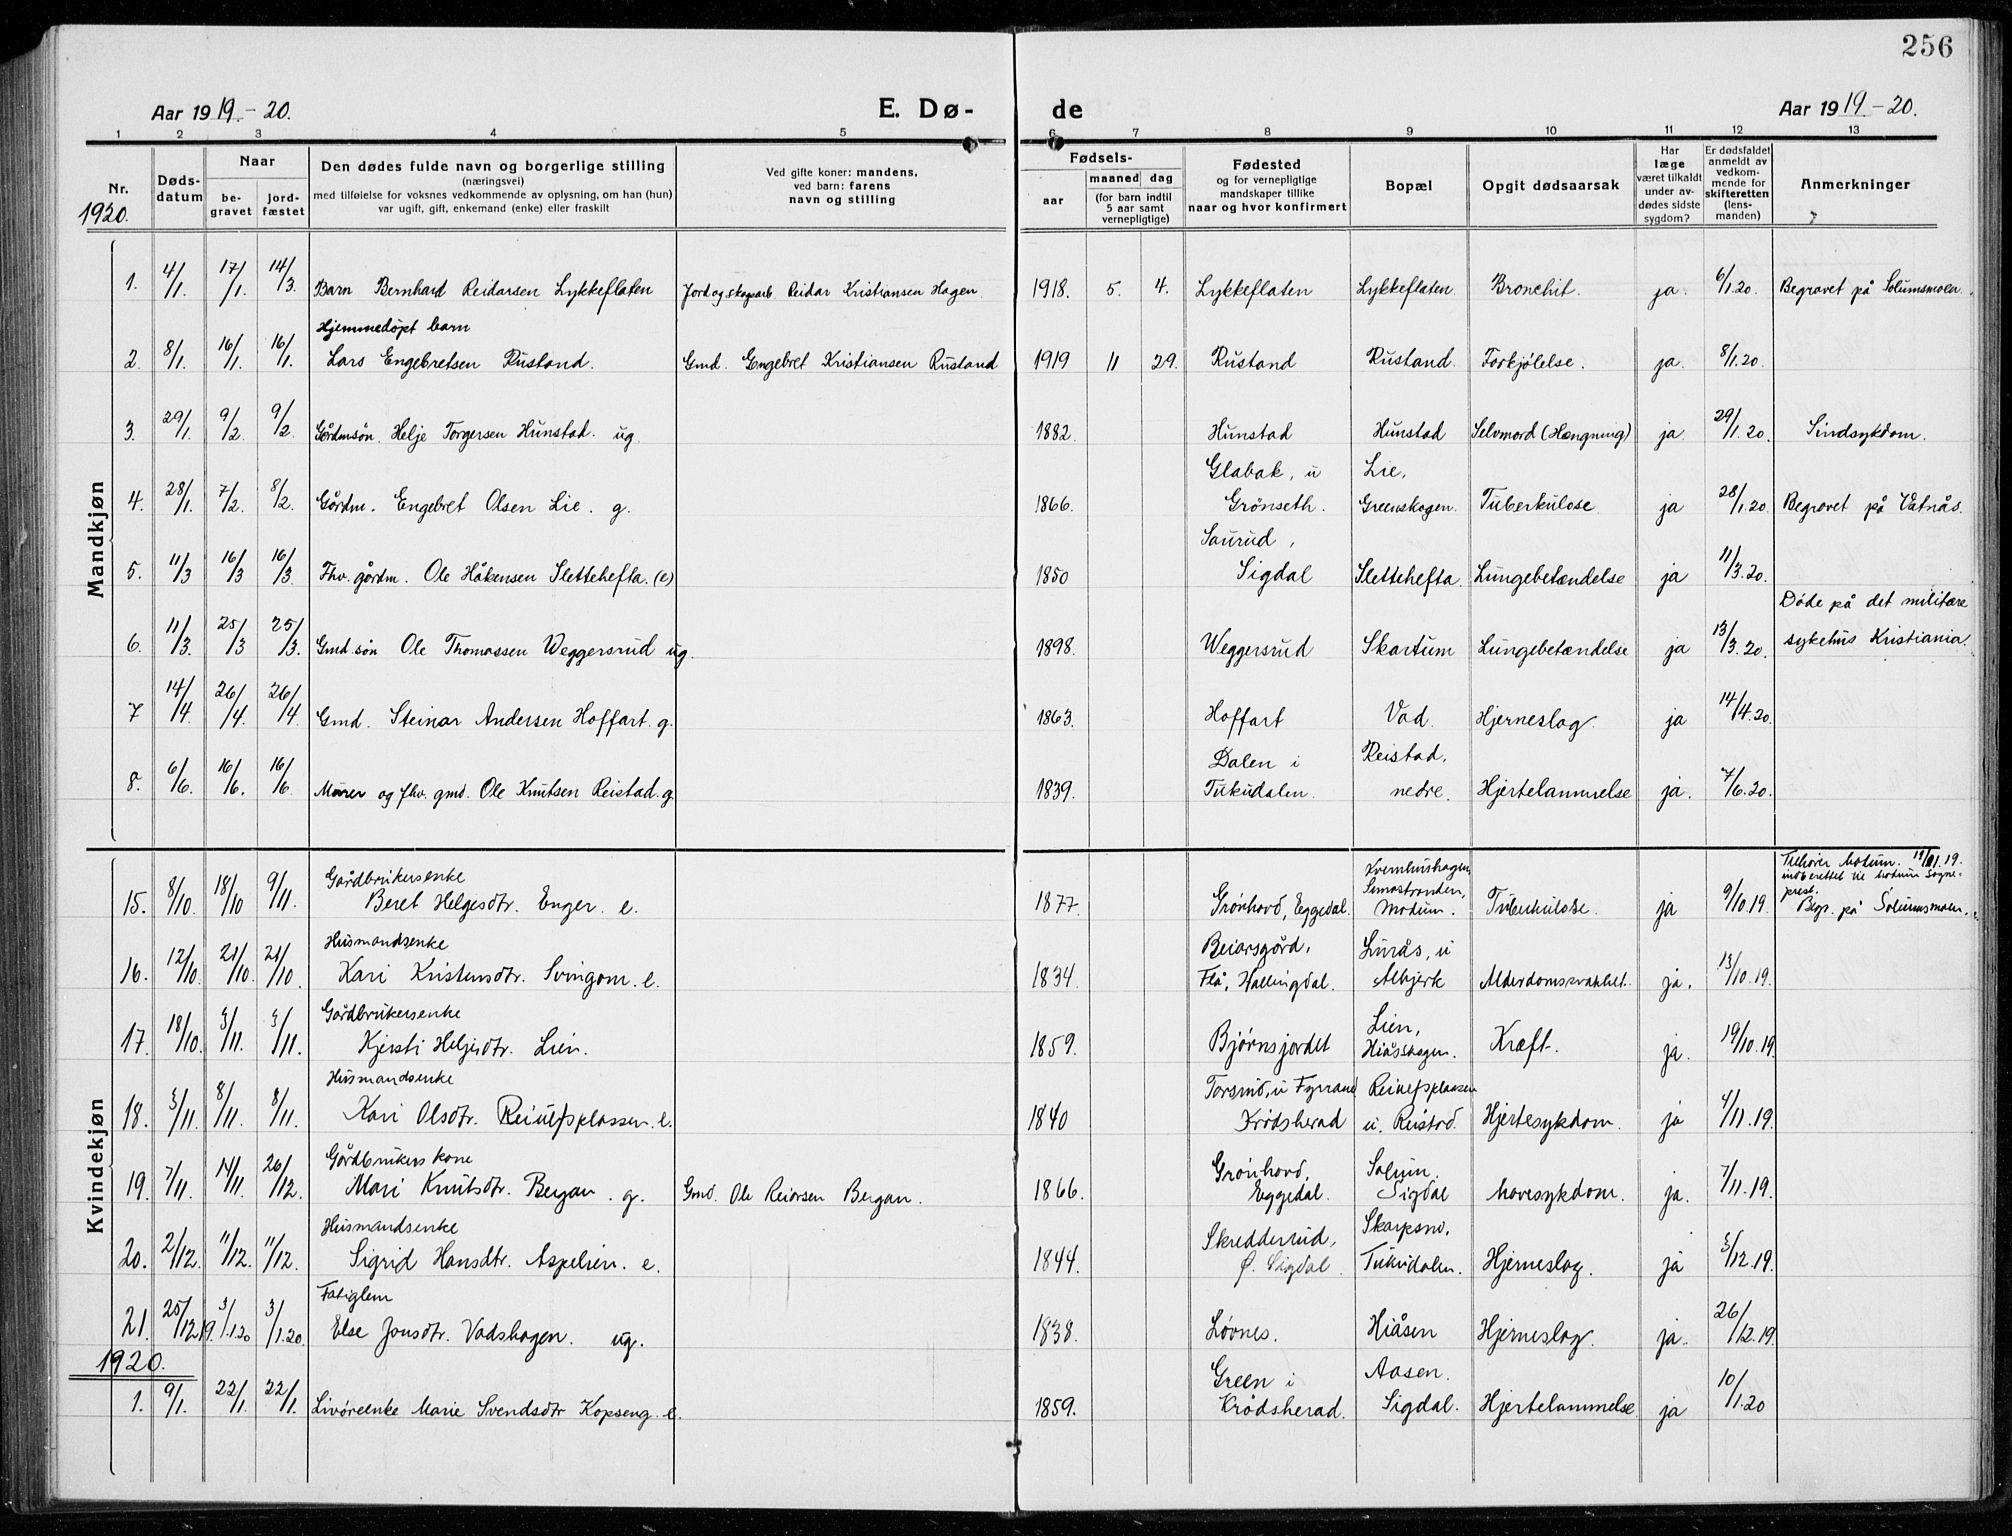 256
Aar 1919.-20.
E. Dø-
de
Aar 1919-20.
1 2 3 4 5 6 7 8 9 10 11 12 13
Nr. 1920.
Døds-datum
Naar
be-gravet
jord-fæstet
Den dødes fulde navn og borgerlige stilling
(næringsvei)
med tilføielse for voksnes vedkommende av oplysning, om han (hun)
var ugift, gift, enkemand (enke) eller fraskilt
Ved gifte koner: mandens,
ved barn: farens
navn og stilling
Fødsels-
aar
maaned dag
(for barn indtil 5 aar samt vernepligtige)
Fødested
og for vernepligtige
mandskaper tillike
naar og hvor konfirmert
Bopæl
Opgit dødsaarsak
Har læge været tilkaldt under av-dødes sidste sygdom?
Er dødsfaldet anmeldt av vedkom-mende for skifteretten (lens-manden)
Anmerkninger
Mandkjøn
1. 4/1. 17/1. 14/3. Barn Bernhard Reidarsen Lykkeflaten Jord og skogsarb. Reidar Kristiansen Hagen. 1918. 5. 4. Lykkeflaten Lykkeflaten Bronchit. ja. 6/1.20. Begravet på Solumsmoen.
Hjemmedøpt barn
2. 8/1. 16/1. 16/1. Lars Engebretsen Rustand. Gmd. Engebret Kristiansen Rustand 1919 11 29. Rustand Rustand. Forkjølelse. ja. 8/1.20.
3. 29/1. 9/2. 9/2. Gårdmsøn. Helje Torgersen Hunstad. ug. 1882. Hunstad Hunstad Selvmord (Hængning) ja. 29/1.20. Sindsykdom.
Glabak, u Lie,
4. 28/1. 7/2. 8/2. Gårdm. Engebret Olsen Lie. g. 1866. Grønseth. Greenskogen. Tuberkulose. ja 28/1.20. Begravet på Vatnås.
Saurud,
5. 11/3 16/3 16/3. Fhv. gårdm. Ole Håkensen Slettehefta. (e) 1850 Sigdal Slettehefta. Lungebetændelse ja 11/3.20.
Døde på det militære
6. 11/3. 25/3 25/3. Gmd.søn Ole Thomassen Weggersrud ug. 1898. Weggersrud Skartum Lungebetændelse ja 13/3.20. sykehus Kristiania.
7 14/4. 26/4. 26/4. Gmd. Steinar Andersen Hoffart. g. 1863. Hoffart Vad. Hjerneslag. ja 14/4.20.
Dalen i Reistad,
8. 6/6. 16/6. 16/6. Murer og fhv. gmd. Ole Knutsen Reistad. g. 1839. Tukudalen. nedre. Hjertelammelse ja. 7/6.20.
Kvindekjøn
Gårdbrukersenke Simostranden, Tilhører Modum.
15. 8/10. 18/10 9/11. Beret Helgesdtr. Enger. e. 1877. Grønhovd, Eggedal. Modum. Tuberkulose. ja 9/10.19. Begr. på Solumsmoen.
Husmandsenke Beiarsgård, Lurås, u
16. 12/10. 21/10. 21/10. Kari Kristensdtr. Svingom. e. 1834. Flå, Hallingdal. Albjerk Alderdomssvakhet. ja. 13/10.19.
Gårdbrukersenke Lien,
17. 18/10. 3/11. 3/11. Kjersti Helgesdtr. Lien. 1859. Bjørnsjordet Hiåsskogen. Kræft. ja. 19/10.19.
Husmandsenke Torsrud, u Fyrrand Reiulfsplassen
18. 3/11. 8/11. 8/11. Kari Olsdtr. Reiulfsplassen. e. 1840 Krødsherad u. Reistad. Hjertesykdom. ja 4/11.19.
Gårdbrukers kone Grønhovd, Solum.
19. 7/11. 14/11. 26/12. Mari Knutsdtr. Bergan. g. Gmd. Ole Reiersen Bergan. 1866. Eggedal. Sigdal Mavesykdom. ja. 7/11.19.
Husmandsenke Skredderrud, Skarpsno,
20. 2/12. 11/12. 11/12. Sigrid Hansdtr. Aspelien. e. 1844. Ø. Sigdal. Tukudalen. Hjerneslag. ja 3/12.19.
Fatiglem
21. 25/12.19. 3/1.20 3/1.20. Else Jonsdtr. Vadshagen. ug. 1838. Løvnes. Hiåsen Hjerneslag. ja. 26/12.19.
1920.
Green i Aasen.
1. 9/1. 22/1. 22/1. Livøreenke Marie Svendsdtr Kopseng. e. 1859. Krødsherad. Sigdal. Hjertelammelse. ja 10/1.20